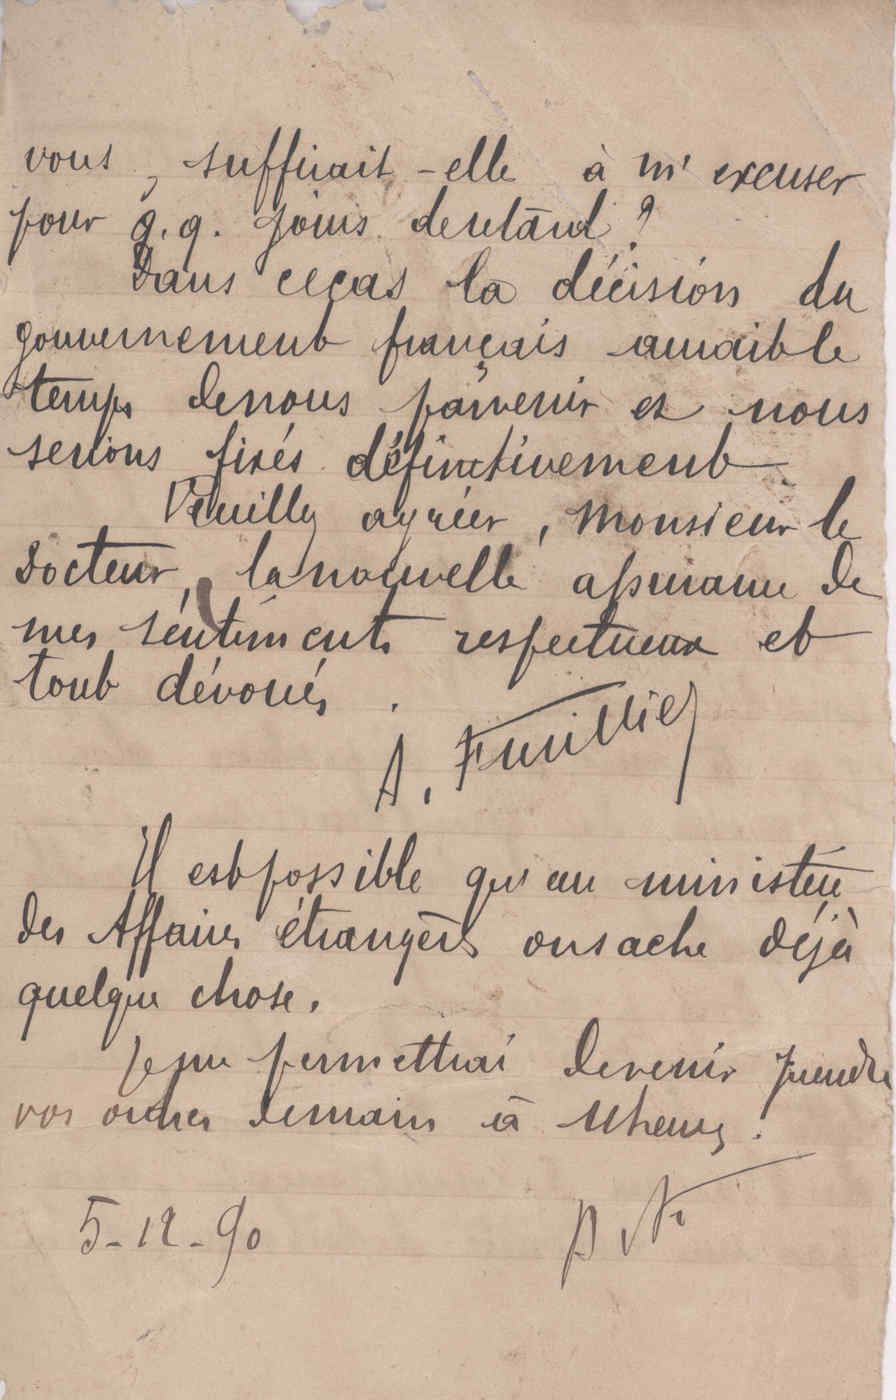 vous, suffirait-elle à m'excuser
pour q.q. jours de retard ?
Dans ce cas la décision du
gouvernement français aurait le
temps de nous parvenir et nous
serions fixés définitivement.
Veuillez agréer, Monsieur le
Docteur, la nouvelle assurance de
mes sentiments respectueux et
tout dévoués.
A.
Il est possible qu'au ministère
des Affaires étrangères on sache déjà
quelque chose.
Je me permettrai de venir prendre
vos ordres demain à heures.
5-12-90